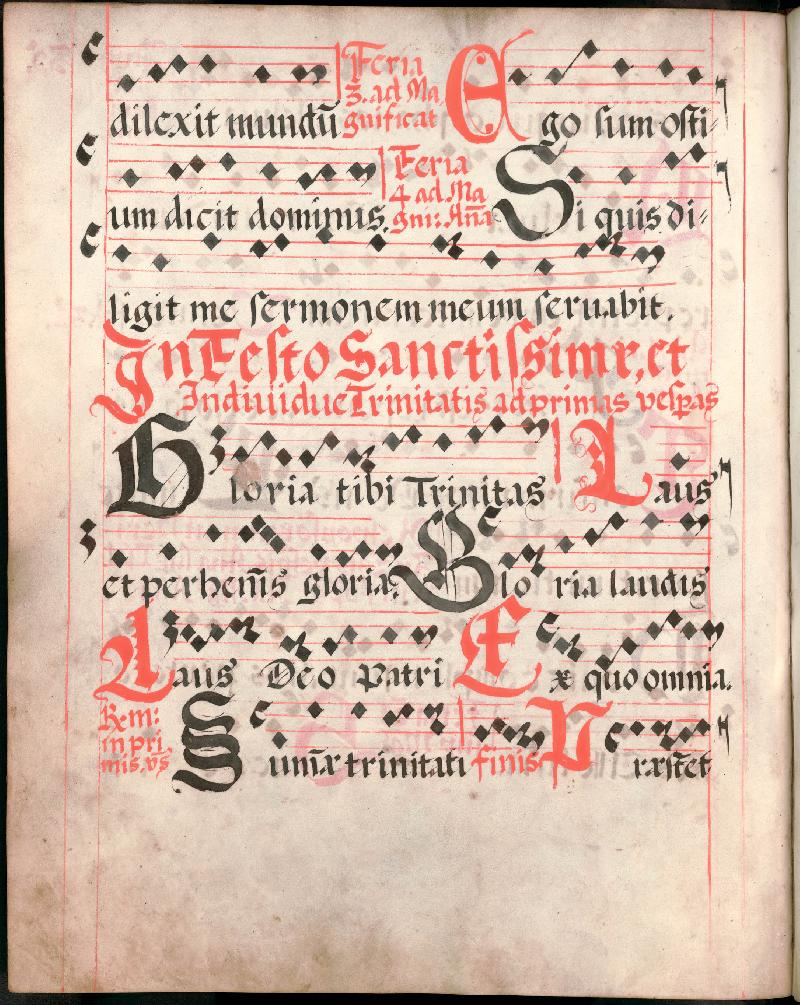 dilexit mundū Feria 3. ad Magnificat Ego sum osti-
um dicit dominus. Feria 4 ad Magni: Ana Si quis di-
ligit me sermonem meum seruabit.
In Festo Sanctissimæ, et
Indiuiduæ Trinitatis ad primas vespas
Gloria tibi Trinitas Laus
et perhenīs gloria. Gloria laudis
Laus Deo Patri Ex quo omnia.
Rem: in primis vs Summæ trinitati finis Præstet